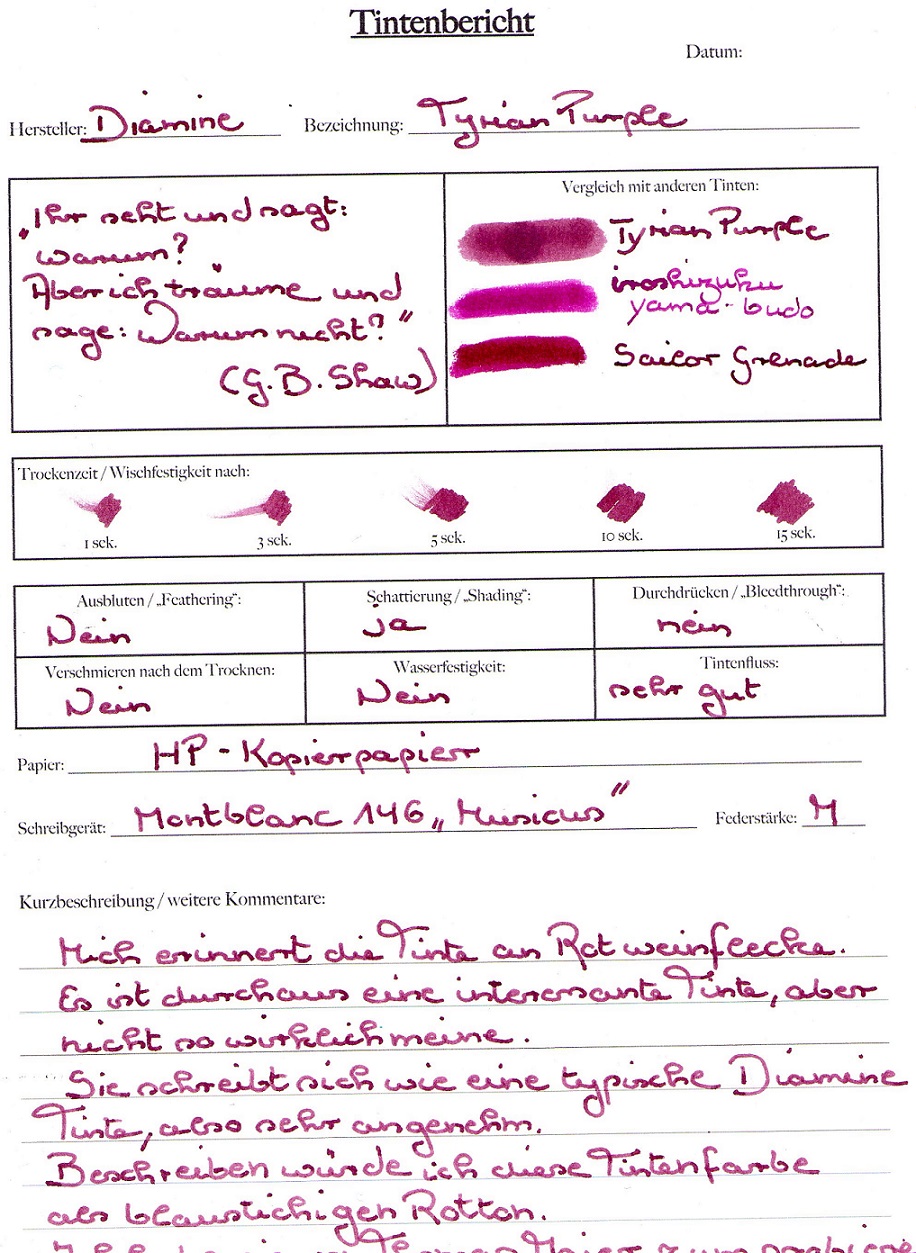 Tintenbericht
Datum:
Hersteller: Diamine Bezeichnung: Tyrian Purple
„Ihr seht und sagt:
warum?
Aber ich träume und
sage: Warum nicht?"
(G.B. Shaw)
Vergleich mit anderen Tinten:
Tyrian Purple
iroshizuku
yama-budo
Sailor Grenade
Trockenzeit / Wischfestigkeit nach:
1 sek. 3 sek. 5 sek. 10 sek. 15 sek.
Ausbluten / „Feathering": Schattierung / „Shading": Durchdrücken / „Bleedthrough":
Nein ja nein
Verschmieren nach dem Trocknen: Wasserfestigkeit: Tintenfluss:
Nein Nein sehr gut
Papier: HP-Kopierpapier
Schreibgerät: Montblanc 146 „Musicus" Federstärke: M
Kurzbeschreibung / weitere Kommentare:
Mich erinnert die Tinte an Rotweinflecke.
Es ist durchaus eine interessante Tinte, aber
nicht so wirklich meine.
Sie schreibt sich wie eine typische Diamine
Tinte, also sehr angenehm.
Beschreiben würde ich diese Tintenfarbe
als blaustichigen Rotton.